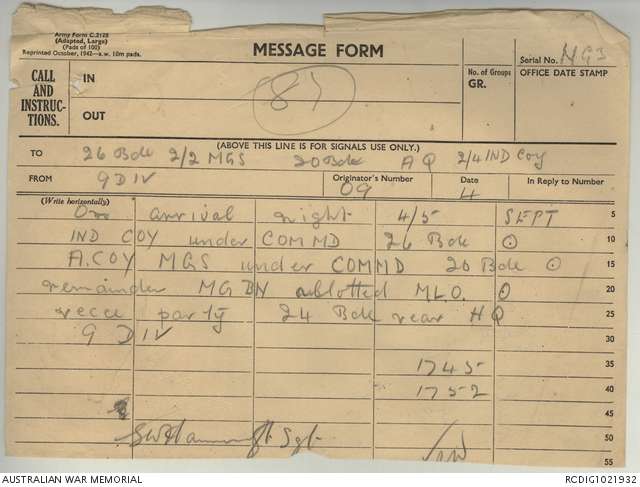 Army Form C.2128
(Adapted, Large)
(Pads of 100)
Reprinted October, 1942—a.w. 10m pads.
MESSAGE FORM
Serial No. MG3
CALL
AND
INSTRUC-
TIONS.
IN
OUT
87
No. of Groups
GR.
OFFICE DATE STAMP
(ABOVE THIS LINE IS FOR SIGNALS USE ONLY.)
TO 26 Bde 2/2 MGS 20 Bde AQ 2/4 IND Coy
FROM 9 DIV
Originator's Number
09
Date
4
In Reply to Number
(Write horizontally)
On arrival night 4/5 SEPT 5
IND COY under COMMD 26 Bde ⊙ 10
A.COY MGS under COMMD 20 Bde ⊙ 15
remainder MG BN allotted MLO. ⊙ 20
recce party 24 Bde rear HQ 25
9 DIV 30
1745 35
1752 40
45
50
Sgt
55
AUSTRALIAN WAR MEMORIAL
RCDIG1021932